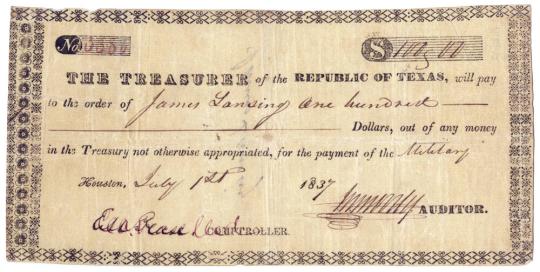 No.
$ 100.00
THE TREASURER of the REPUBLIC OF TEXAS, will pay
to the order of James Lansing one hundred
Dollars, out of any money
in the Treasury not otherwise appropriated, for the payment of the Military
Houston, July 1st 1837
AUDITOR.
E M Pease
COMPTROLLER.